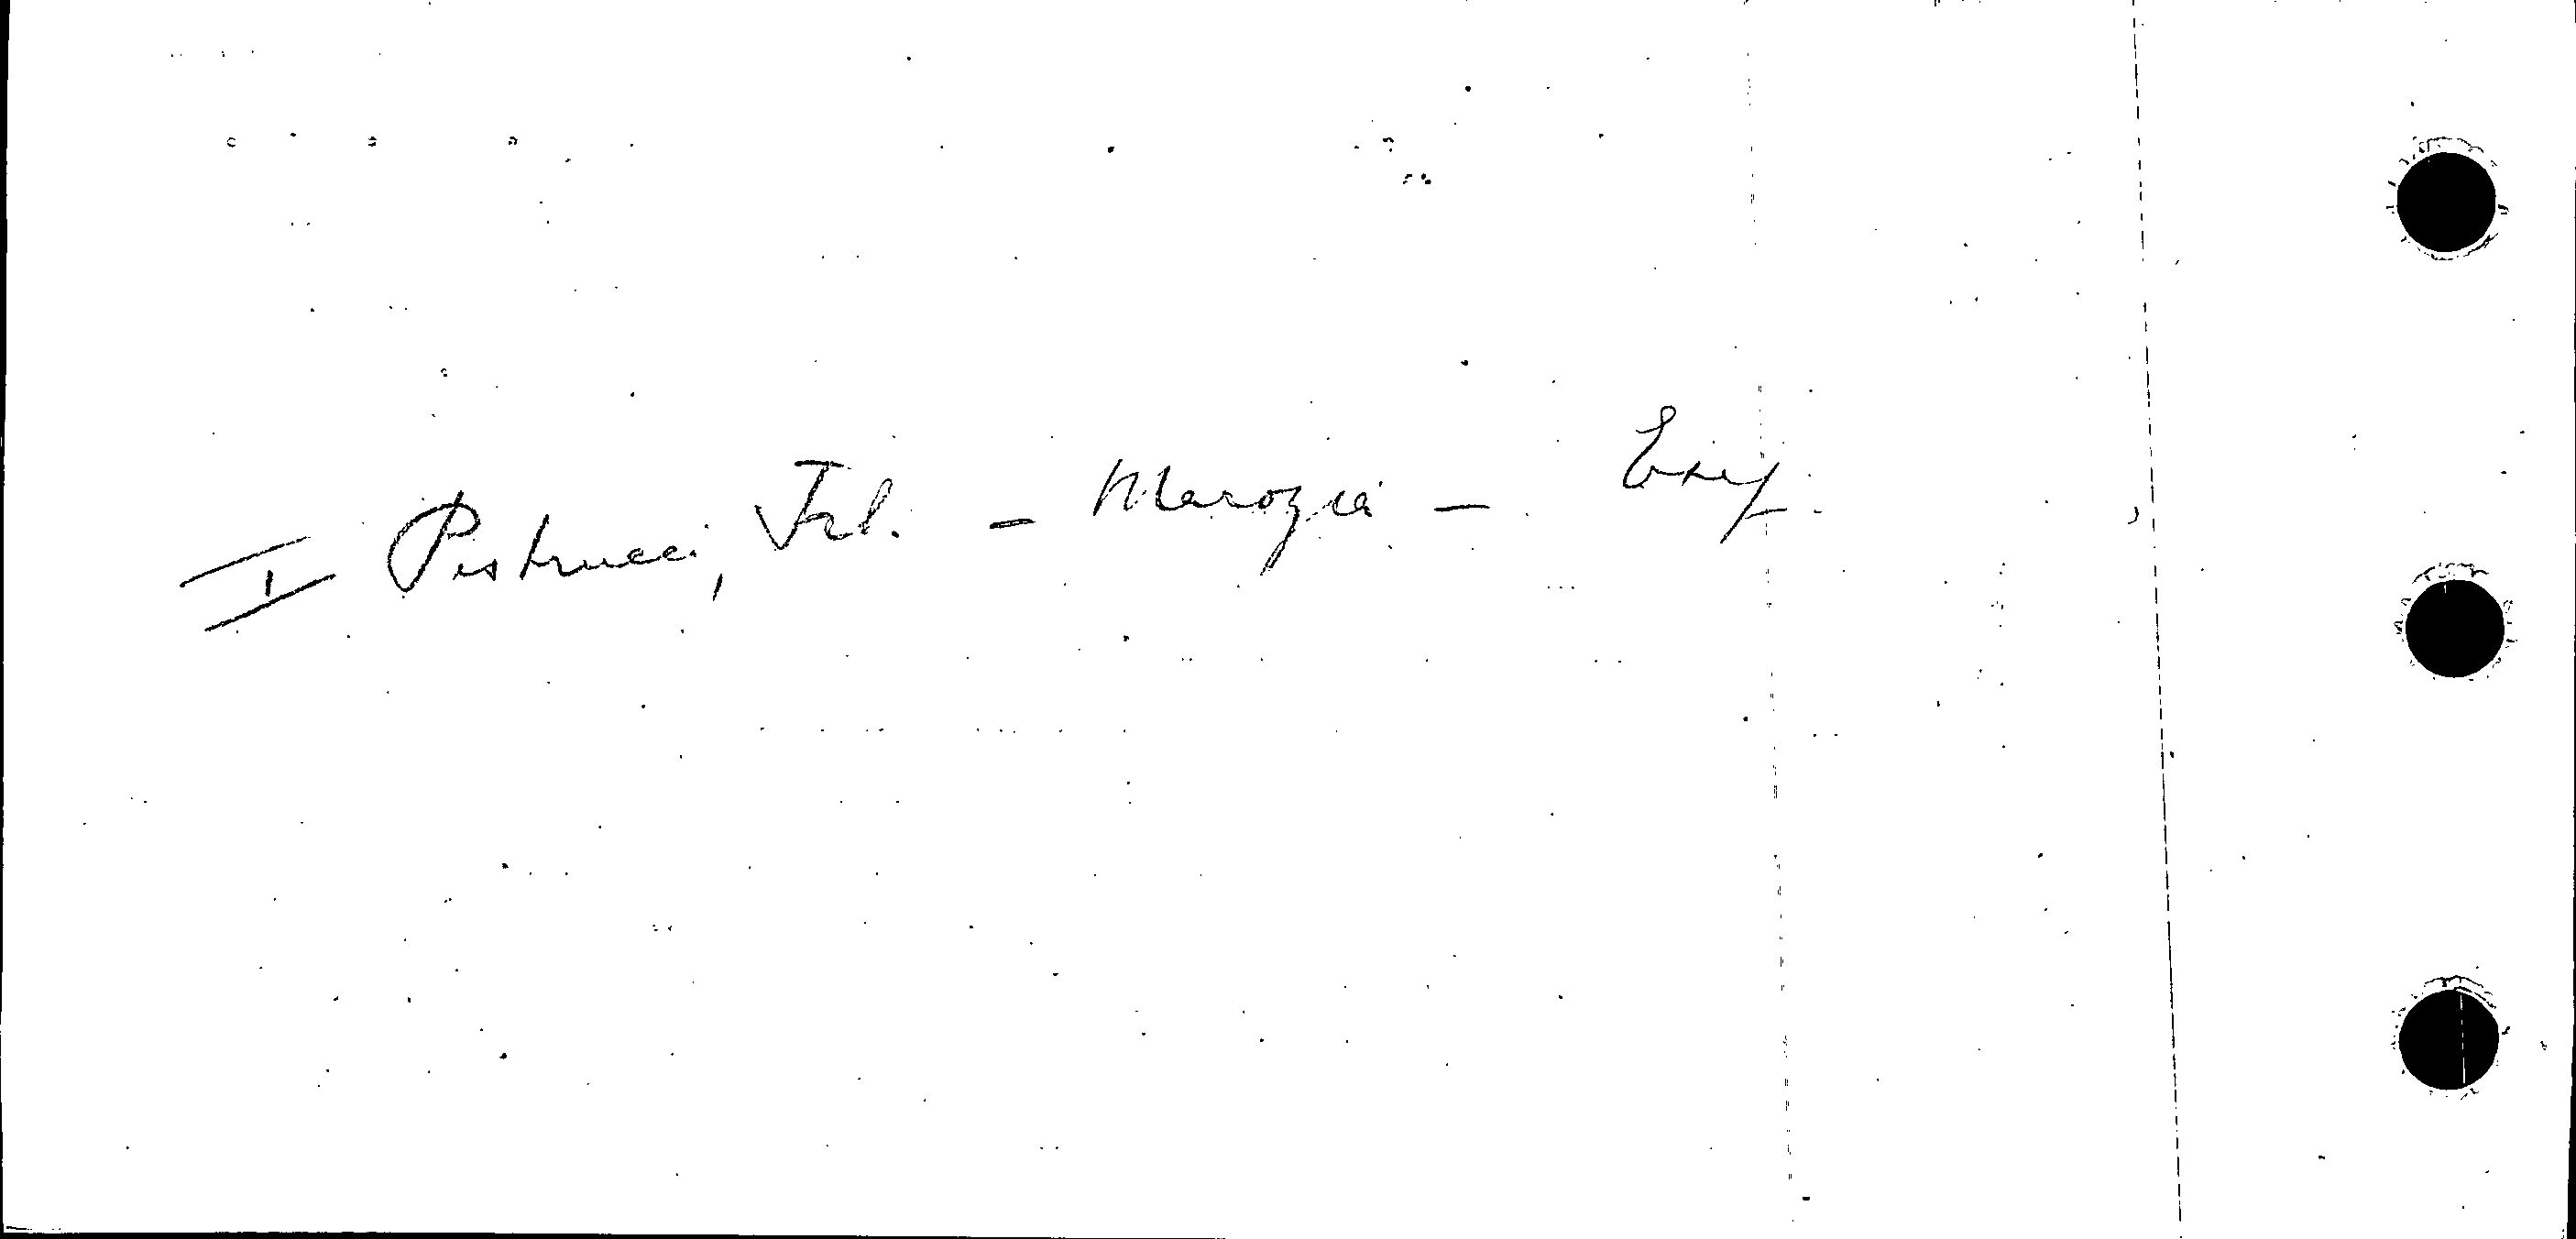 I Pistrucci, Fil. – Marozia –